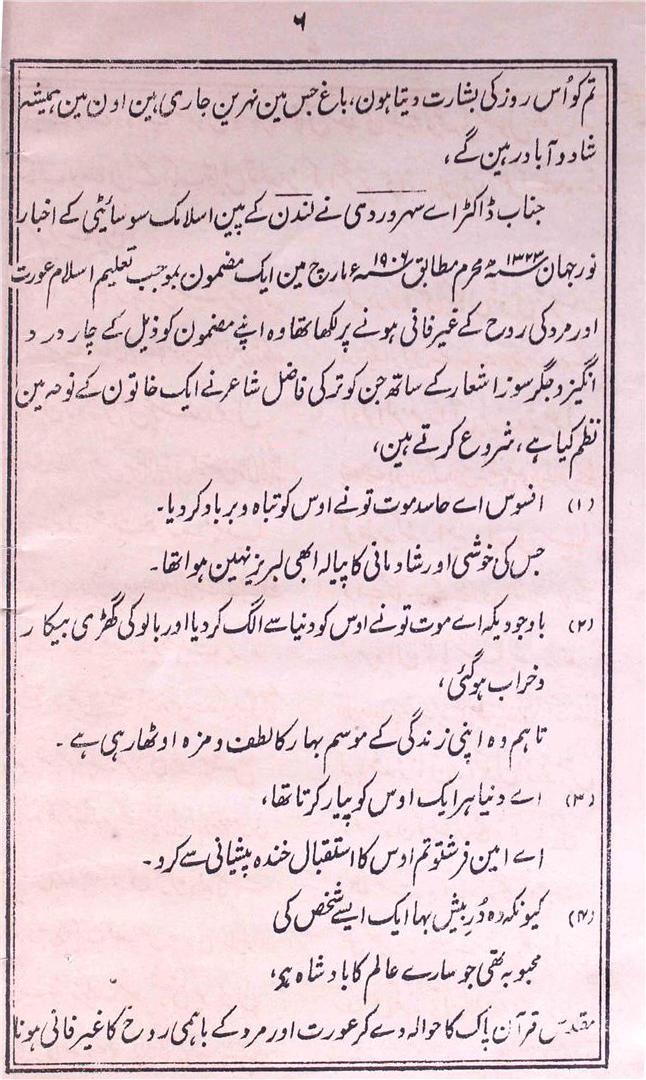 ۶
تم کو اُس روز کی بشارت دیتا ہون، باغ جس مین نہرین جاری ہین اون مین ہمیشہ
شاد و آباد رہین گے،
جناب ڈاکٹر اے سہروردی نے لندن کے پین اسلامک سوسائیٹی کے اخبار
نور جہان ۱۳۲۳ سنہ ھ محرم مطابق ۱۹۰۶ سنہ ء مارچ مین ایک مضمون بموجب تعلیم اسلام عورت
اور مرد کی روح کے غیر فانی ہونے پر لکھا تھا وہ اپنے مضمون کو ذیل کے چار درد
انگیز و جگر سوز اشعار کے ساتھ جن کو ترکی فاضل شاعر نے ایک خاتون کے نوحہ مین
نظم کیا ہے، شروع کرتے ہین،
(۱) افسوس اے حاسد موت تو نے اوس کو تباہ و برباد کر دیا۔
جس کی خوشی اور شادمانی کا پیالہ ابھی لبریز نہین ہوا تھا۔
(۲) باوجودیکہ اے موت تو نے اوس کو دنیا سے الگ کر دیا اور بالو کی گھڑی بیکار
و خراب ہو گئی،
تاہم وہ اپنی زندگی کے موسم بہار کا لطف و مزہ اوٹھا رہی ہے۔
(۳) اے دنیا ہر ایک اوس کو پیار کرتا تھا،
اے امین فرشتو تم اوس کا استقبال خندہ پیشانی سے کرو۔
(۴) کیونکہ وہ دُرِ بیش بہا ایک ایسے شخص کی
محبوبہ تھی جو سارے عالم کا بادشاہ ہو،
مقدس قرآن پاک کا حوالہ دے کر عورت اور مرد کے باہمی روح کا غیر فانی ہونا